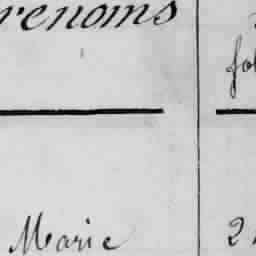 renoms
fol
Marie 2